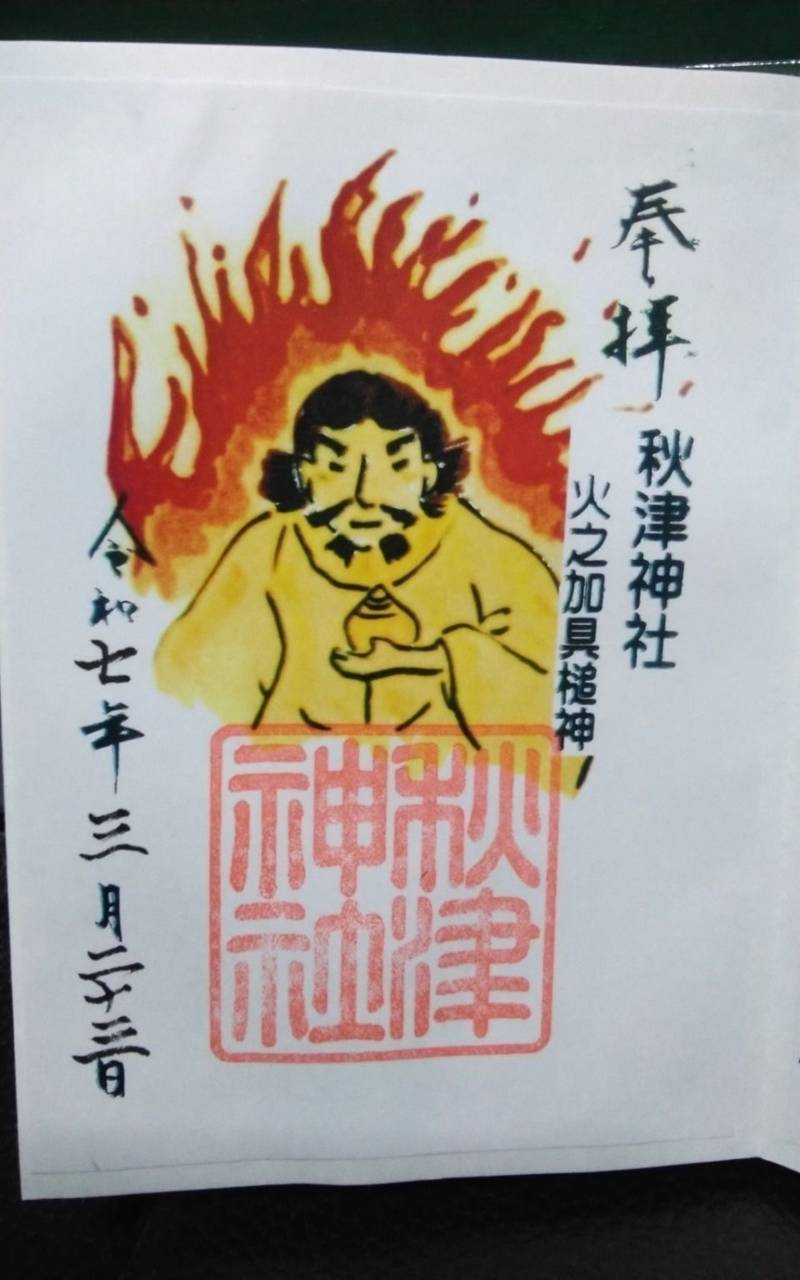 奉拝
秋津神社
火之加具槌神
秋津
神社
令和七年三月二十三日